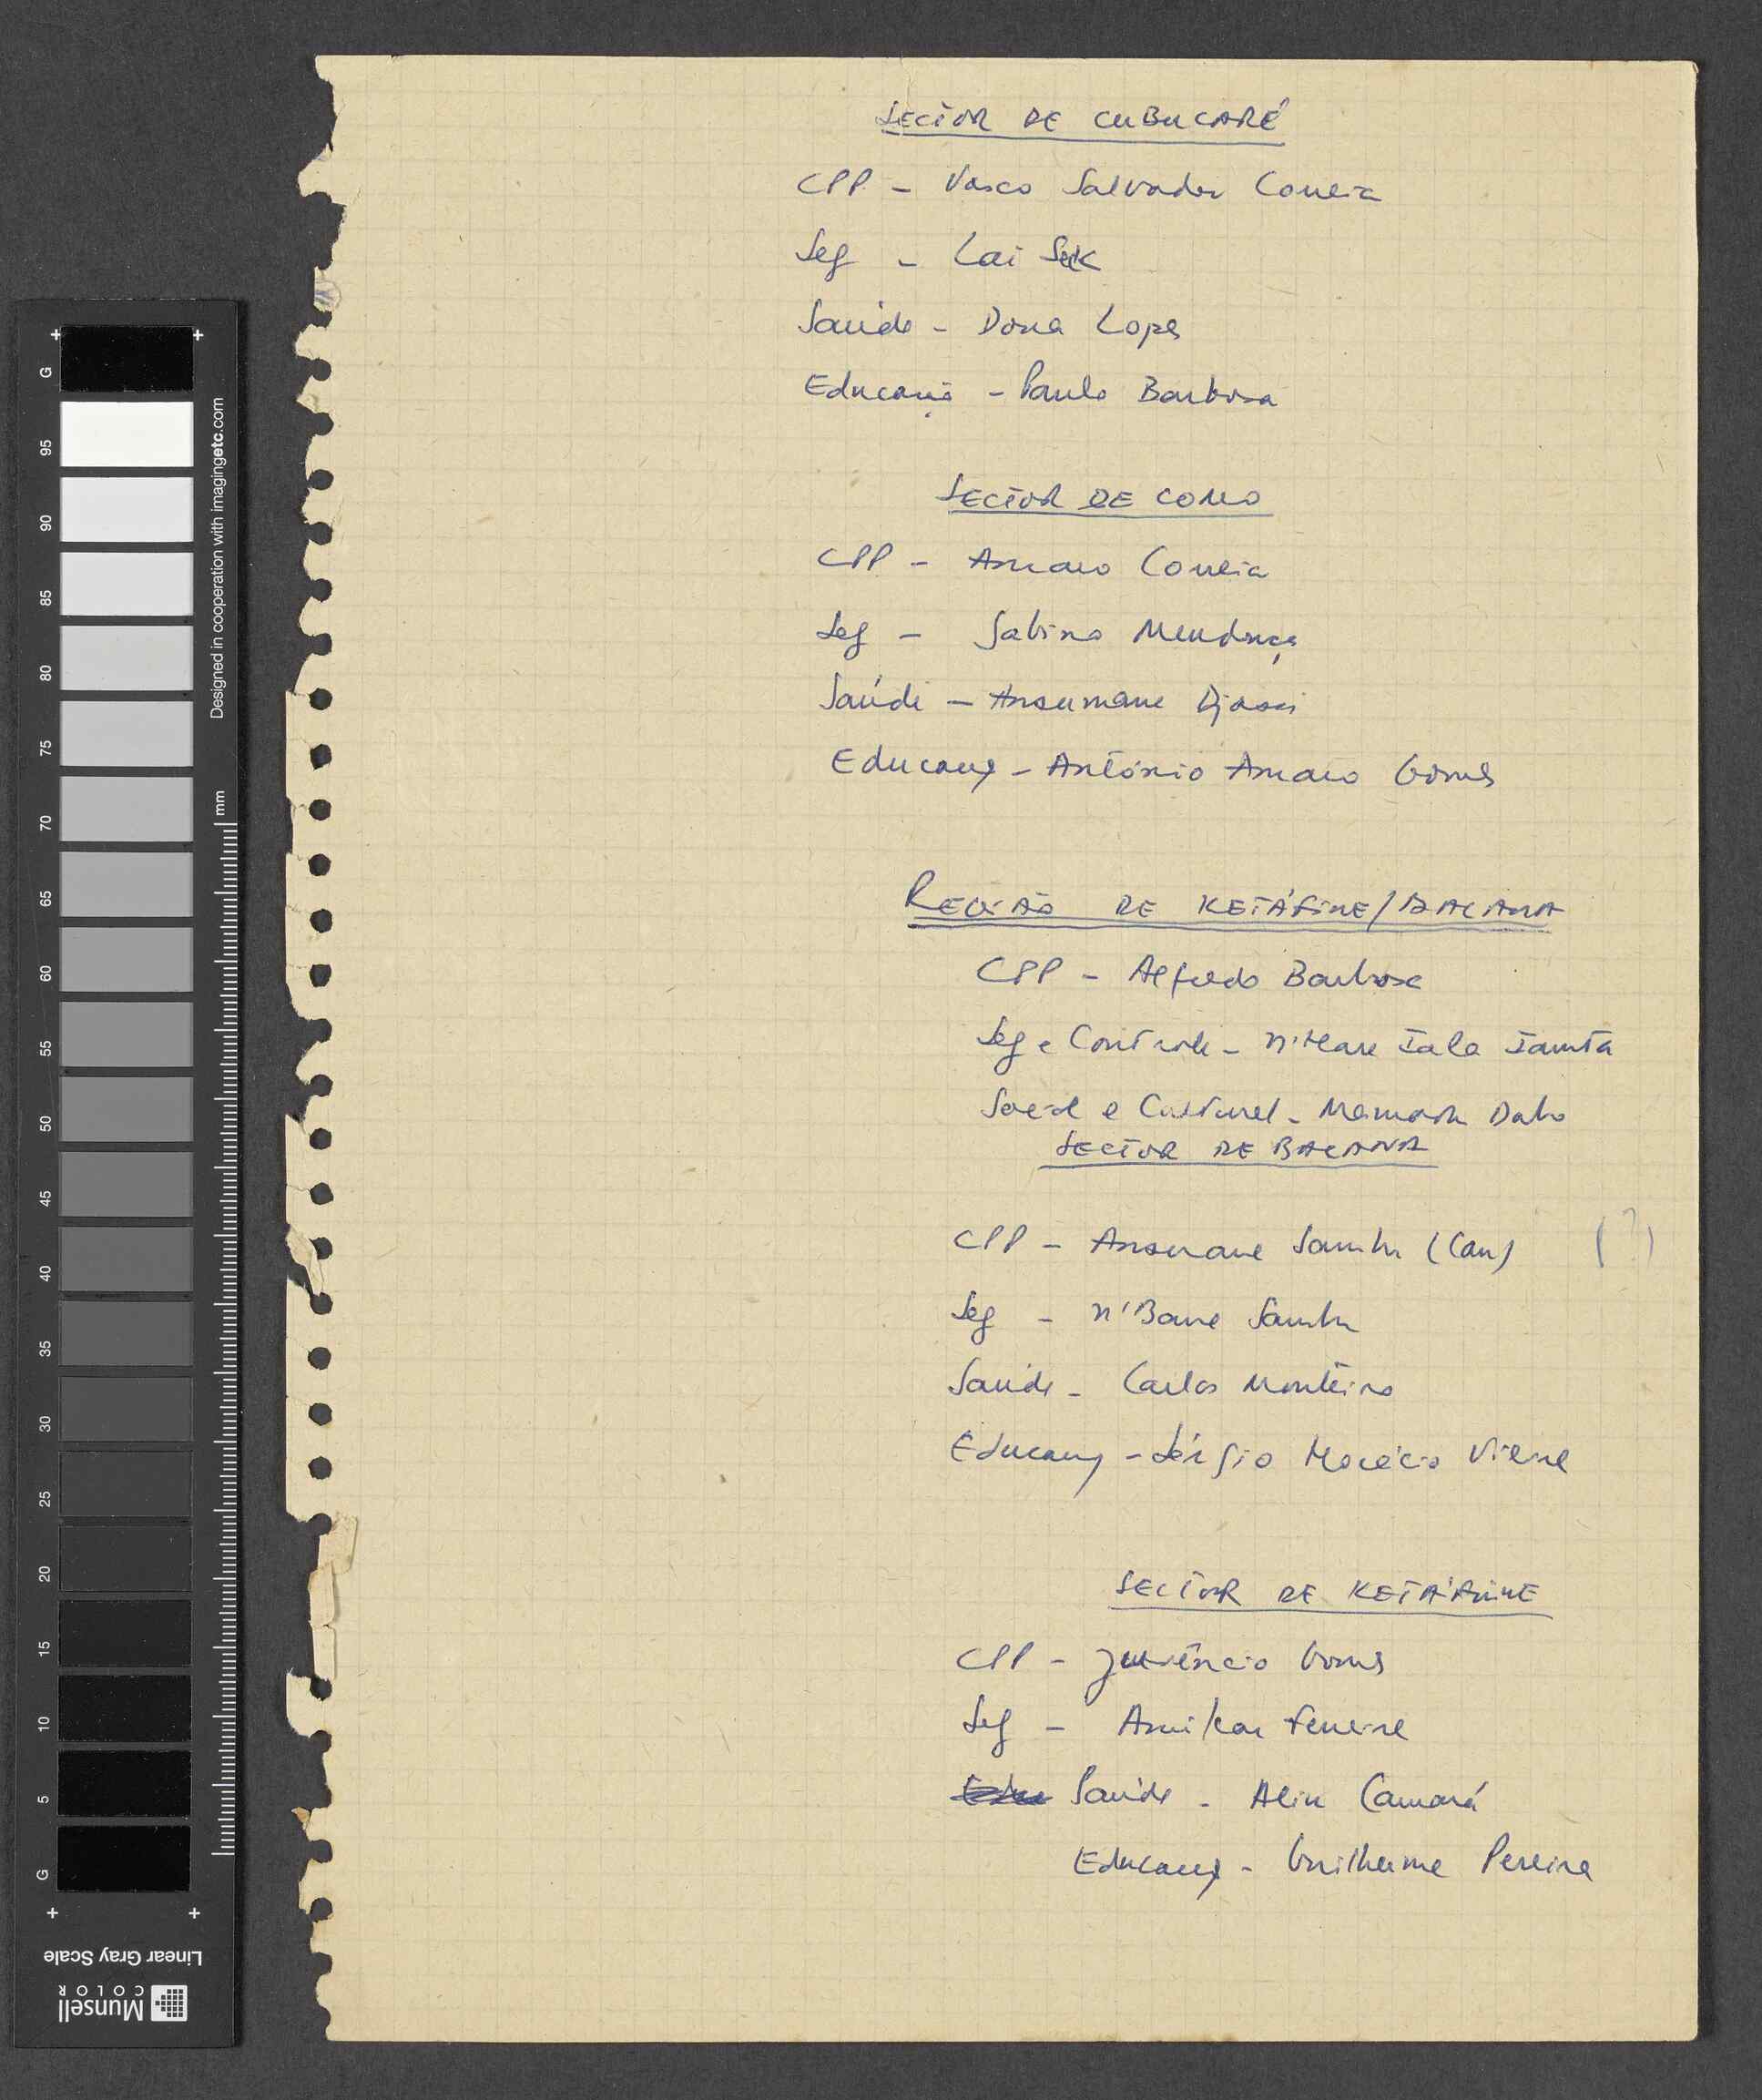 SECTOR DE CUBUCARÉ
CPP - Vasco Salvador Correia
Seg - Lai Sek
Saúde - Dona Lopes
Educação - Paulo Barbosa
SECTOR DE COMO
CPP - Amaro Correia
Seg - Sabino Mendonça
Saúde - Ansumane Djassi
Educaç - António Amaro Gomes
REGIÃO DE KETÁFINE/BALANA
CPP - Alfredo Barbosa
Seg e Controle - N'Hare Iala
Social e Cultural - Mamadu
SECTOR DE BALANA
CPP - Ansumane Sambu (Can) (?)
Seg - N'Bane Sambu
Saúde - Carlos Monteiro
Educaç - Sérgio Horácio Vieira
SECTOR DE KETÁFINE
CPP - Juvêncio Gomes
Seg - Amilcar Ferreira
Edu Saúde - Aliu Camará
Educaç - Guilherme Pereira
G
95
90
85
80
75
70
65
60
55
50
45
40
35
30
25
20
15
10
5
G
Designed in cooperation with imagingetc.com
mm
Linear Gray Scale
Munsell
COLOR